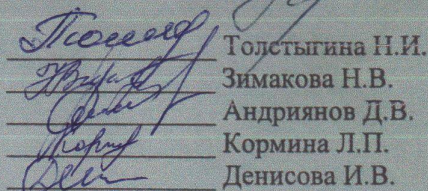 Толстыгина Н.И.
Зимакова Н.В.
Андриянов Д.В.
Кормина Л.П.
Денисова И.В.